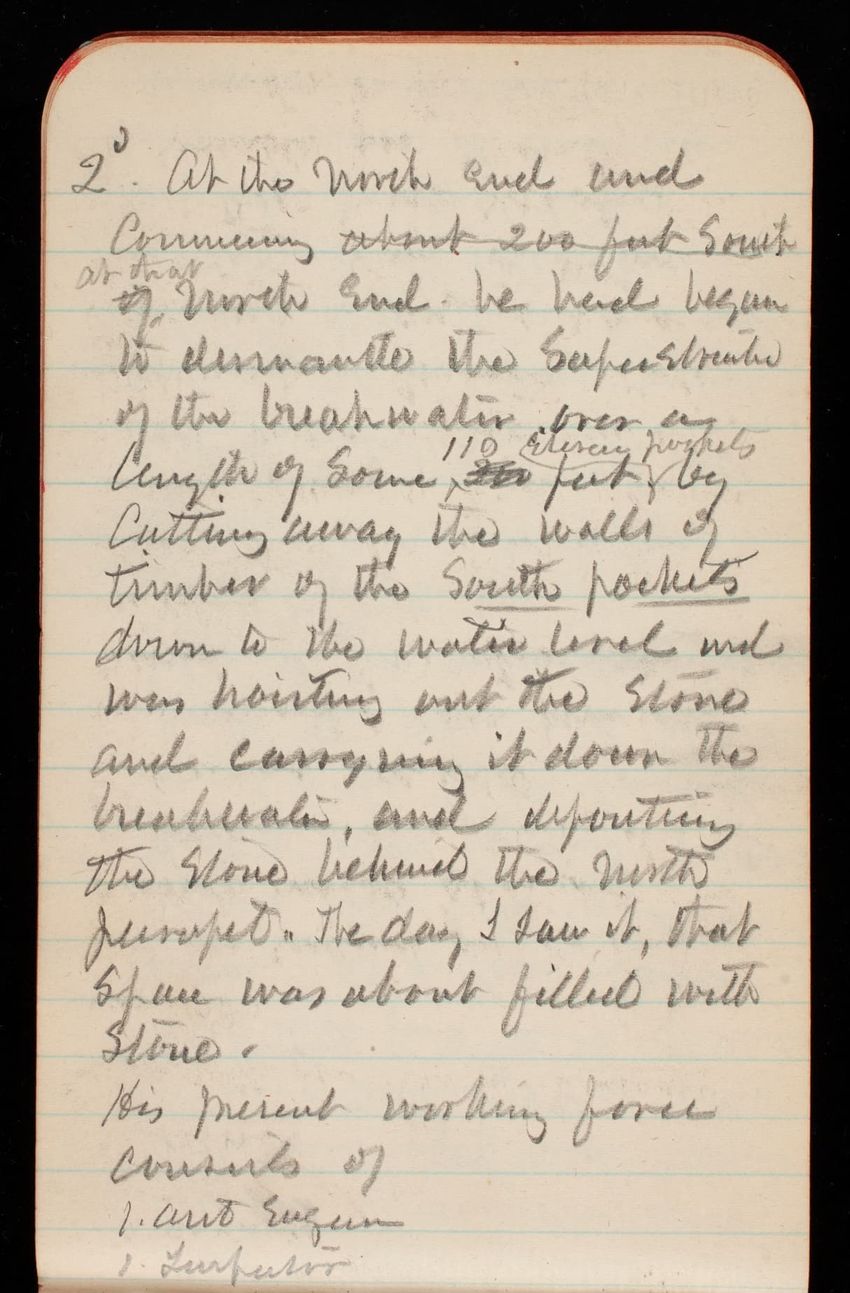 2°. At the North End and
Commencing about 200 feet South
at that
of North End he had began
to dismantle the Superstructure
of the breakwater over a
110 (eleven pockets)
length of Some feet by
Cutting away the walls of
timber of the South pockets
down to the water level and
was hoisting out the Stone
and carrying it down the
breakwater, and depositing
the Stone behind the North
parapet. The day I saw it, that
Space was about filled with
Stone.
His present working force
consists of
1. asst Engineer
1. Inspector